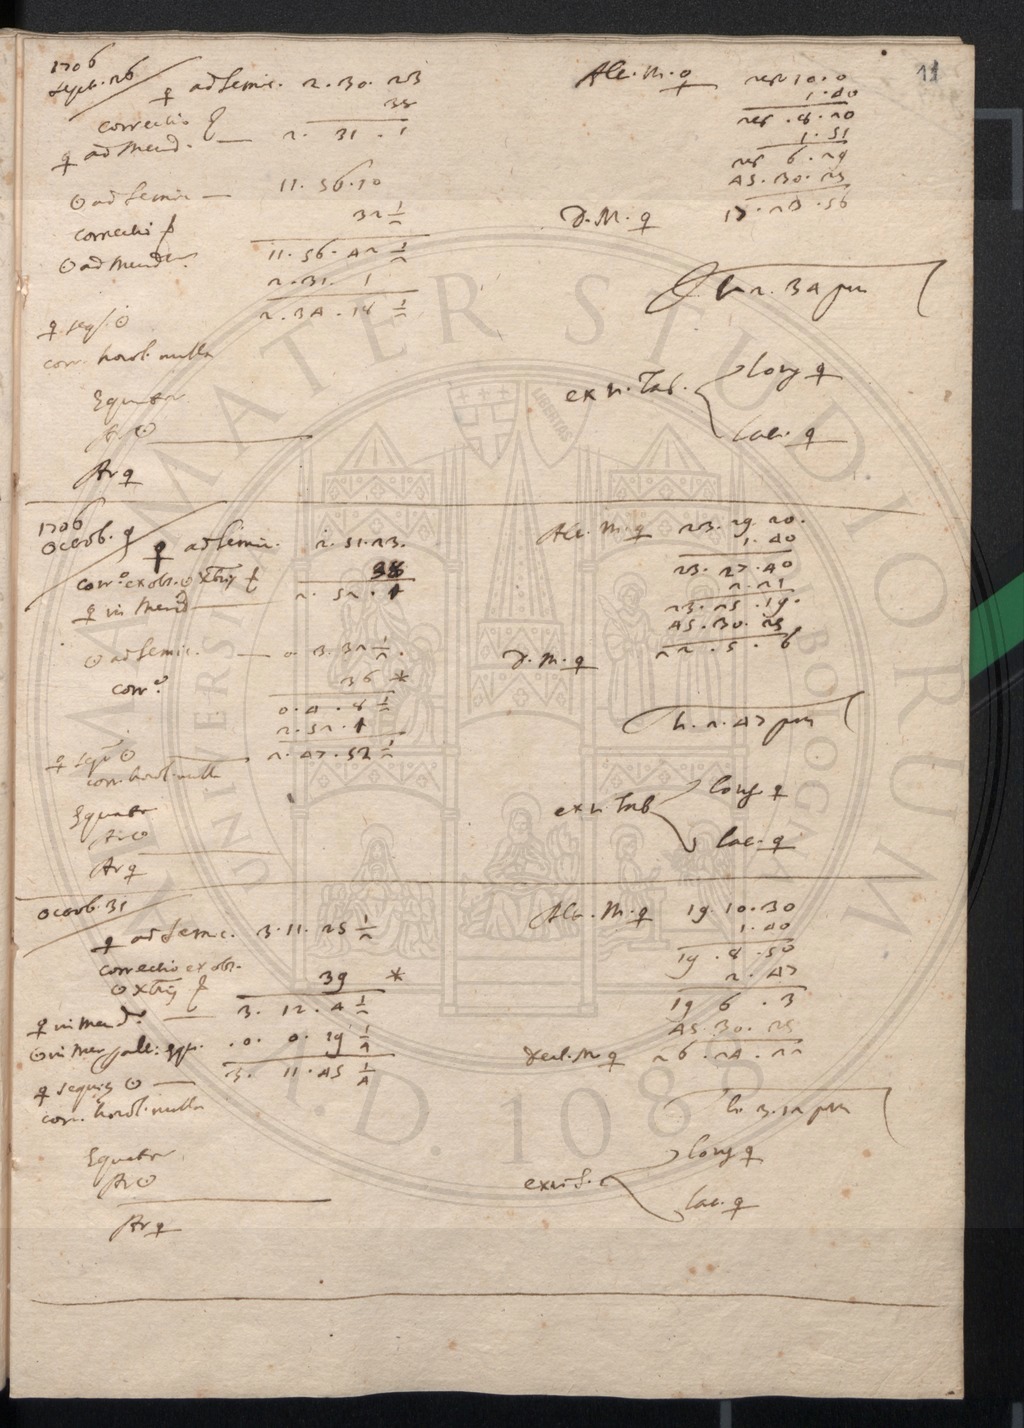 11
1706
Septb. 26
♀ ad Semic. 2. 30. 23
38
correctio
♀ ad Merid. — 2. 31. 1
☉ ad Semic — 11. 56. 10
correctio 32 ½
☉ ad Merid. 11. 56. 42 ½
2. 31. 1
♀ seq. ☉ 2. 34. 18 ½
corr. horol. nulla
Equator
Ar ☉
Ar ♀
Alt. M. ♀ 28. 10. 0
1. 40
28. 8. 20
1. 51
28. 6. 29
45. 30. 25
D. M. ♀ 17. 23. 56
h 2. 34 pm
ex n. Tab.
Long ♀
Lat. ♀
1706
Octob. 9
♀ ad Semic. 2. 51. 23.
38
♀ in Merid — 2. 52. 1
☉ ad Semic. — 0. 3. 32 ½.
corr.º 36 *
0. 4. 8 ½
2. 52. 1
♀ seqt ☉ 2. 47. 52 ½
corr. horol. nulla
Equator
Ar ☉
Ar ♀
Alt. M. ♀ 23. 29. 20.
1. 40
23. 27. 40
2. 21
23. 25. 19.
45. 30. 25
D. M. ♀ 22. 5. 6
h. 2. 47 pm
ex n. Tab
Long. ♀
Lat. ♀
Octob. 31
♀ ad Semic. 3. 11. 25 ½
correctio ex obs.
☉ 39 *
♀ in Merid. — 3. 12. 4 ½
☉ in Mer .0. 0. 19 ¼
♀ sequit ☉ — 3. 11. 45 ¼
corr. horol. nulla
Equator
Ar ☉
Ar ♀
Alt. M. ♀ 19. 10. 30
1. 40
19. 8. 50
2. 47
19. 6. 3
45. 30. 25
Decl. M ♀ 26. 24. 22
h. 3. 12 pm
ex n. T.
Long ♀
Lat. ♀
ALMA MATER STUDIORUM
UNIVERSITÀ DI BOLOGNA
LIBERTAS
A.D. 1088